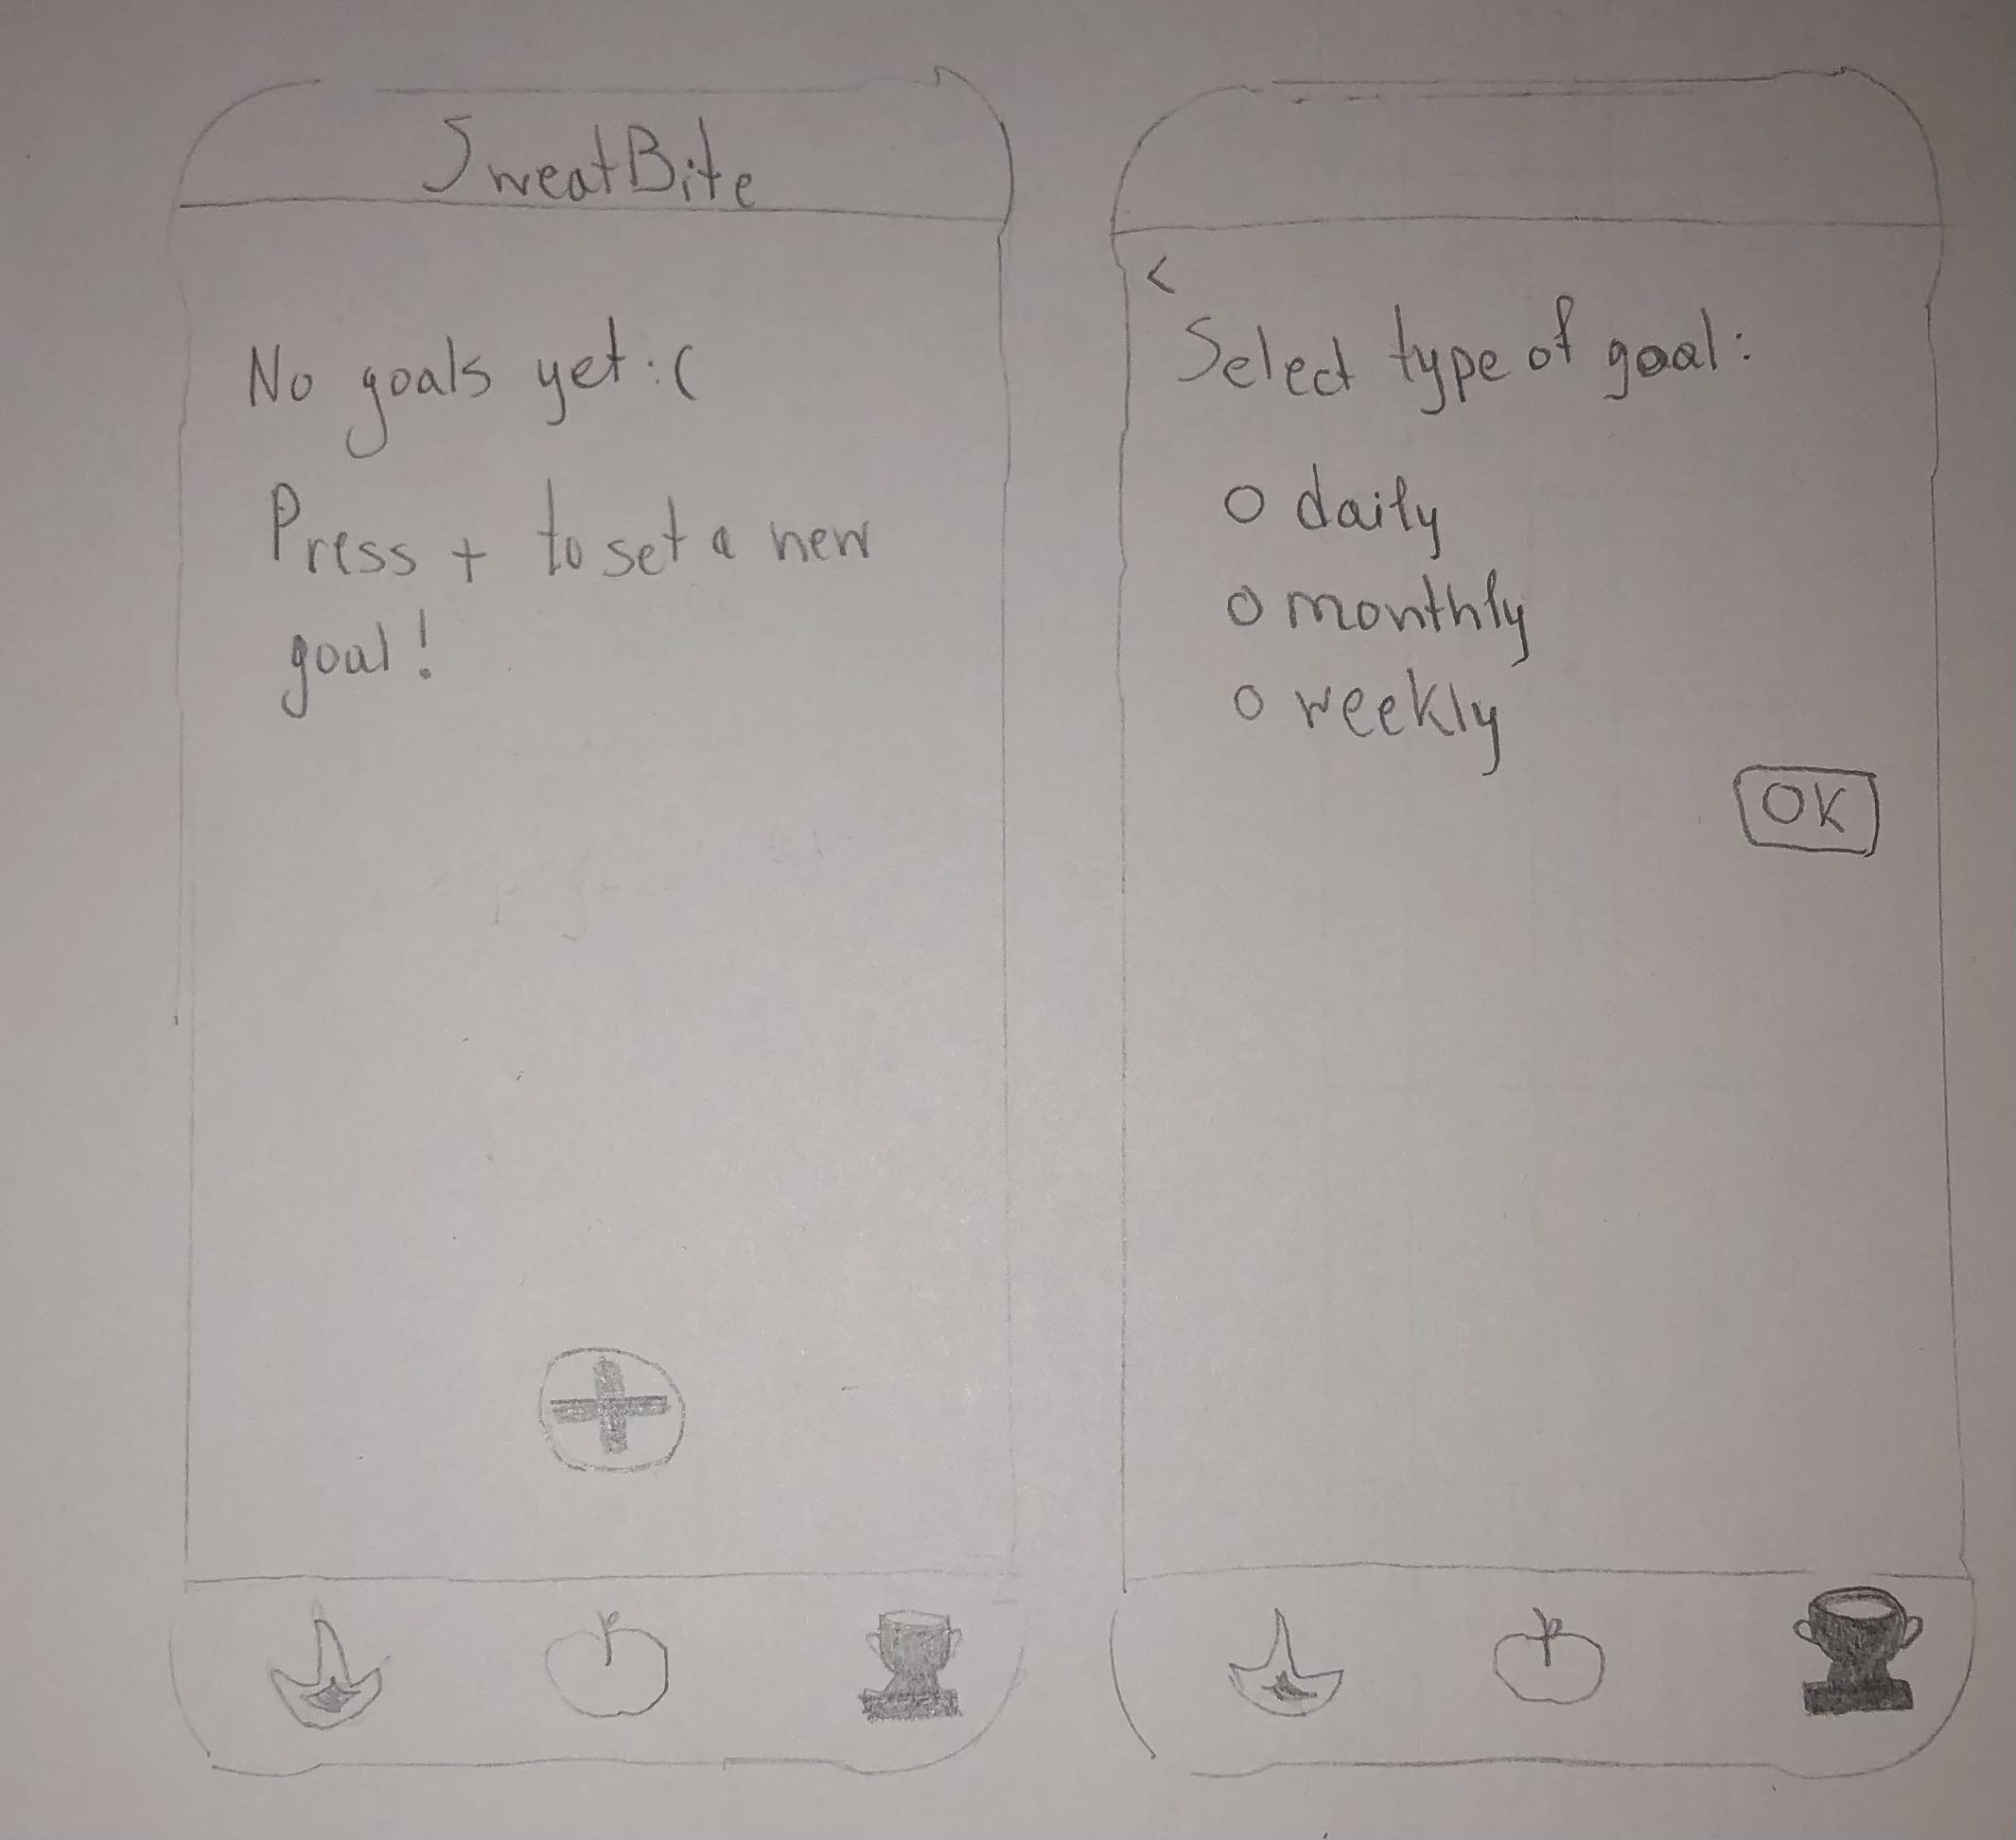 SweatBite
No goals yet :(
Press + to set a new
goal!
<
Select type of goal:
O daily
O monthly
O weekly
OK